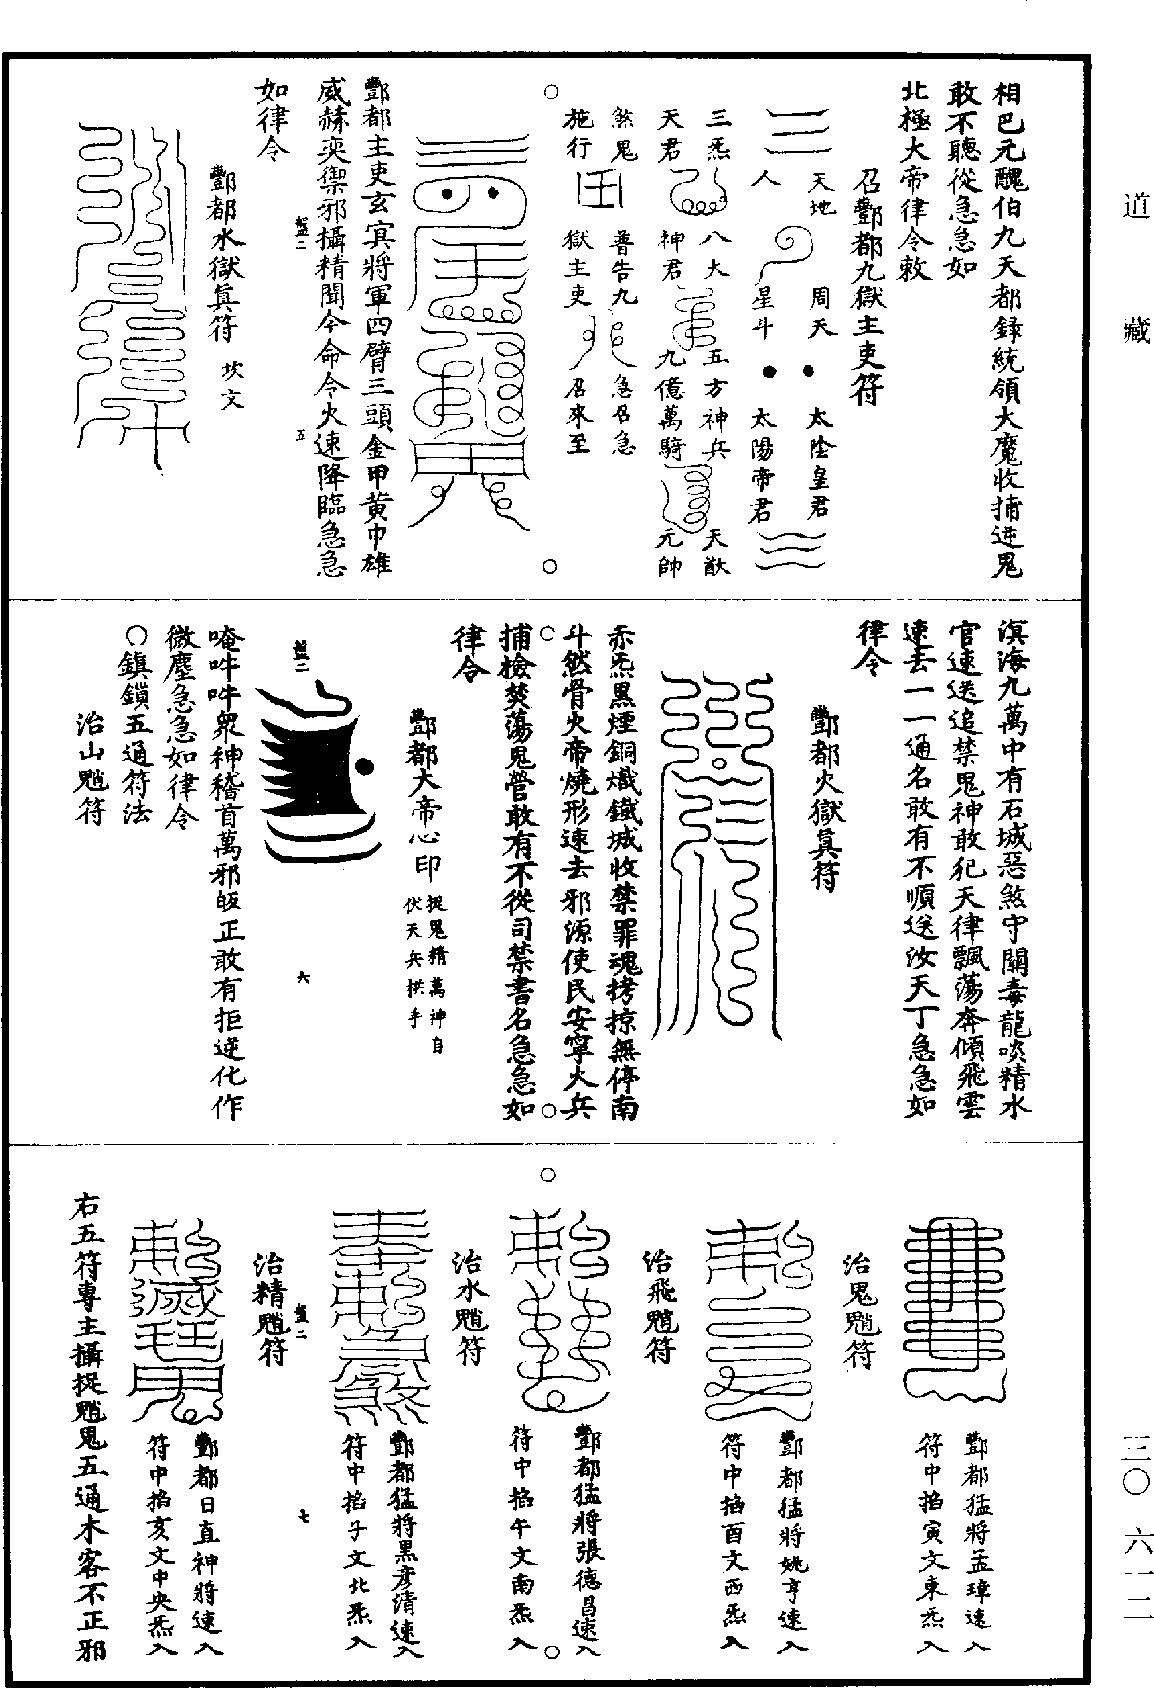 道藏
三〇 六一二
相巴元醜伯九天都錄統領大魔收捕逆鬼
敢不聽從急急如
北極大帝律令敕
召酆都九獄主吏符
天地
人
周天
星斗
太陰皇君
太陽帝君
三炁
天君
八大
神君
五方神兵
九億萬騎
天猷
元帥
煞鬼
施行
普告九
獄主吏
急召急
召來至
酆都主吏玄冥將軍四臂三頭金甲黃巾雄
威赫奕禦邪攝精聞今命令火速降臨急急
如律令
酆都水獄眞符 坎文
溟海九萬中有石城惡煞守關毒龍啖精水
官速送追禁鬼神敢犯天律飄蕩奔傾飛雲
速去一一通名敢有不順送汝天丁急急如
律令
酆都火獄眞符
赤炁黑煙銅熾鐵城收禁罪魂拷掠無停南
斗然骨火帝燒形速去邪源使民安寧大兵
捕檢焚蕩鬼營敢有不從司禁書名急急如
律令
酆都大帝心印 捉鬼精萬神自
伏天兵拱手
唵吽吽眾神稽首萬邪皈正敢有拒逆化作
微塵急急如律令
〇鎮鎖五通符法
治山魈符
酆都猛將孟瑋速入
符中掐寅文東炁入
治鬼魈符
酆都猛將姚亨速入
符中掐酉文西炁入
治飛魈符
酆都猛將張德昌速入
符中掐午文南炁入
治水魈符
酆都猛將黑彥清速入
符中掐子文北炁入
治精魈符
酆都日直神將速入
符中掐亥文中央炁入
右五符專主攝捉魈鬼五通木客不正邪